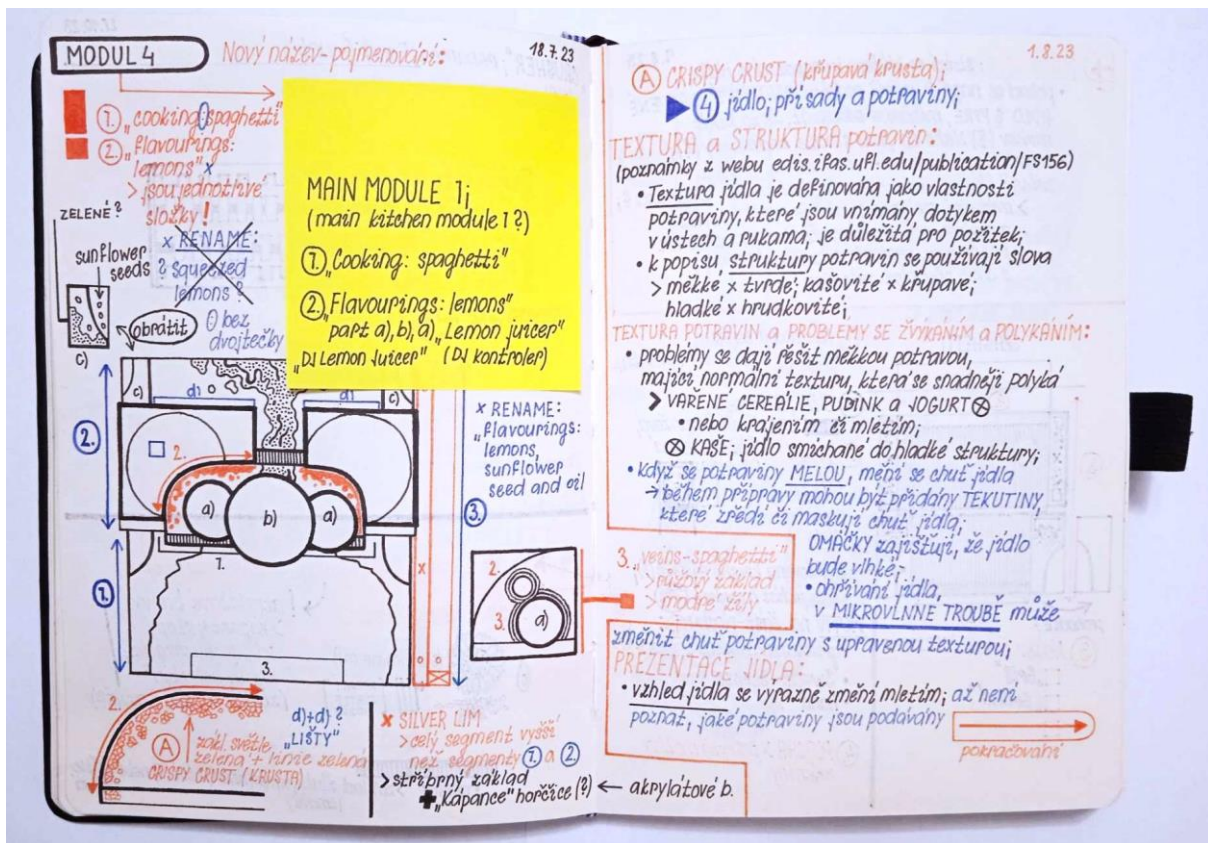 MODUL 4
Nový název - pojmenování:
18.7.23
1. „cooking spaghetti"
2. „flavourings:
lemons" x
> jsou jednotlivé
složky!
x RENAME:
? squeezed
lemons?
() bez
dvojtečky
ZELENÉ?
sunflower
seeds
c)
obrátit
MAIN MODULE 1;
(main kitchen module 1?)
1. „Cooking: spaghetti"
2. „Flavourings: lemons"
part a), b), a) „Lemon juicer"
„DJ Lemon Juicer" (DJ kontroler)
c)
d)
d)
c)
2.
2.
a)
b)
a)
1.
1.
3.
x
3.
x RENAME:
„flavourings:
lemons,
sunflower
seed and oil
2.
3.
a)
2.
A
zákl. světle
zelená + lime zelená
CRISPY CRUST (KRUSTA)
d)+d)?
„LIŠTY"
x SILVER LIM
> celý segment vyšší
než segmenty 1. a 2.
> stříbrný základ
+ „Kápance" hořčice (?) ← akrylátové b.
1.8.23
A CRISPY CRUST (křupavá krusta);
4 jídlo; přísady a potraviny;
TEXTURA a STRUKTURA potravin:
(poznámky z webu edis.ifas.ufl.edu/publication/FS156)
• Textura jídla je definována jako vlastnosti
potraviny, které jsou vnímány dotykem
v ústech a rukama; je důležitá pro požitek;
• k popisu, struktury potravin se používají slova
> měkké x tvrdé; kašovité x křupavé;
hladké x hrudkovité;
TEXTURA POTRAVIN a PROBLÉMY SE ŽVÝKÁNÍM a POLYKÁNÍM:
• problémy se dají řešit měkkou potravou,
mající normální texturu, která se snadněji polyká
> VAŘENÉ CEREÁLIE, PUDINK a JOGURT ⊗
• nebo krájením či mletím;
⊗ KAŠE; jídlo smíchané do hladké struktury;
• když se potraviny MELOU, mění se chuť jídla
→ během přípravy mohou být přidány TEKUTINY,
které zředí či maskují chuť jídla;
OMÁČKY zajišťují, že jídlo
bude vlhké;
• ohřívání jídla,
v MIKROVLNNÉ TROUBĚ může
změnit chuť potraviny s upravenou texturou;
3. „veins-spaghetti"
> růžový základ
> modré žíly
PREZENTACE JÍDLA:
• vzhled jídla se výrazně změní mletím; až není
poznat, jaké potraviny jsou podávány
pokračování